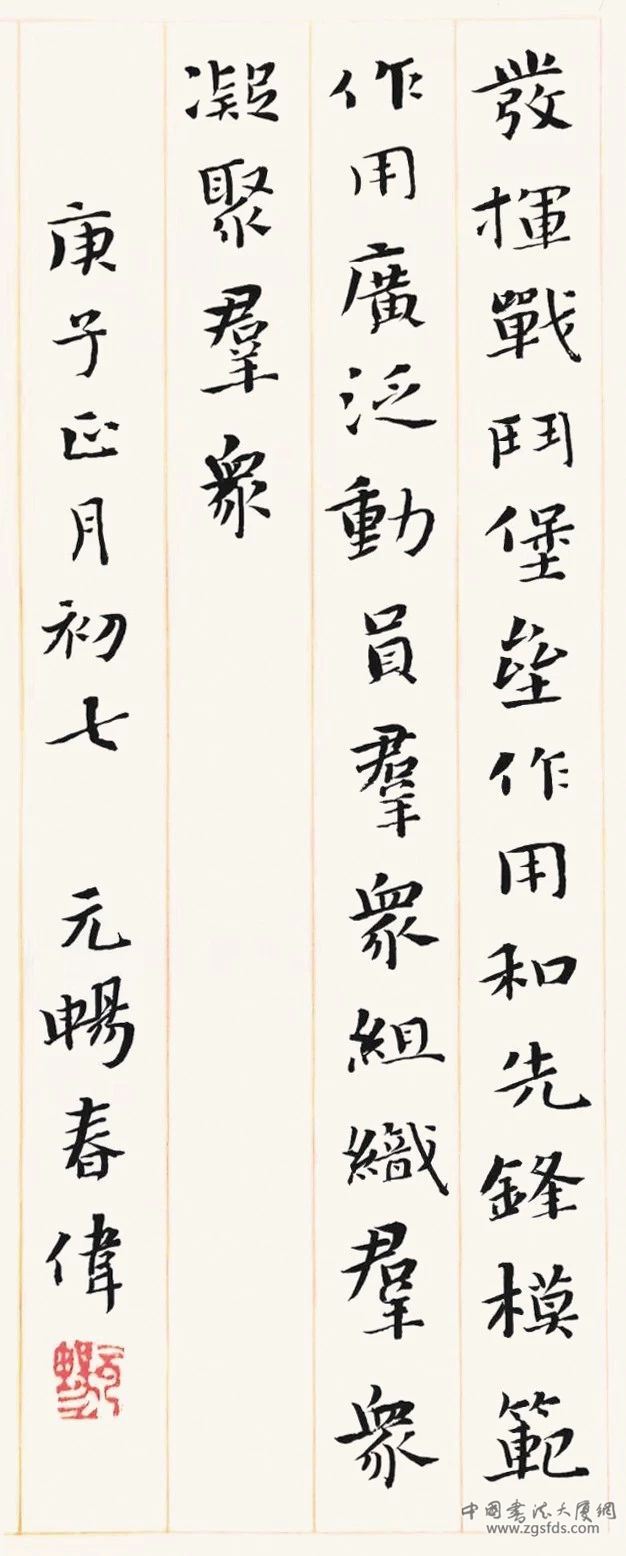 發揮戰鬥堡壘作用和先鋒模範
作用廣泛動員羣眾組織羣眾
凝聚羣眾
庚子正月初七 元暢春偉
中國書法大廈網
www.zgsfds.com